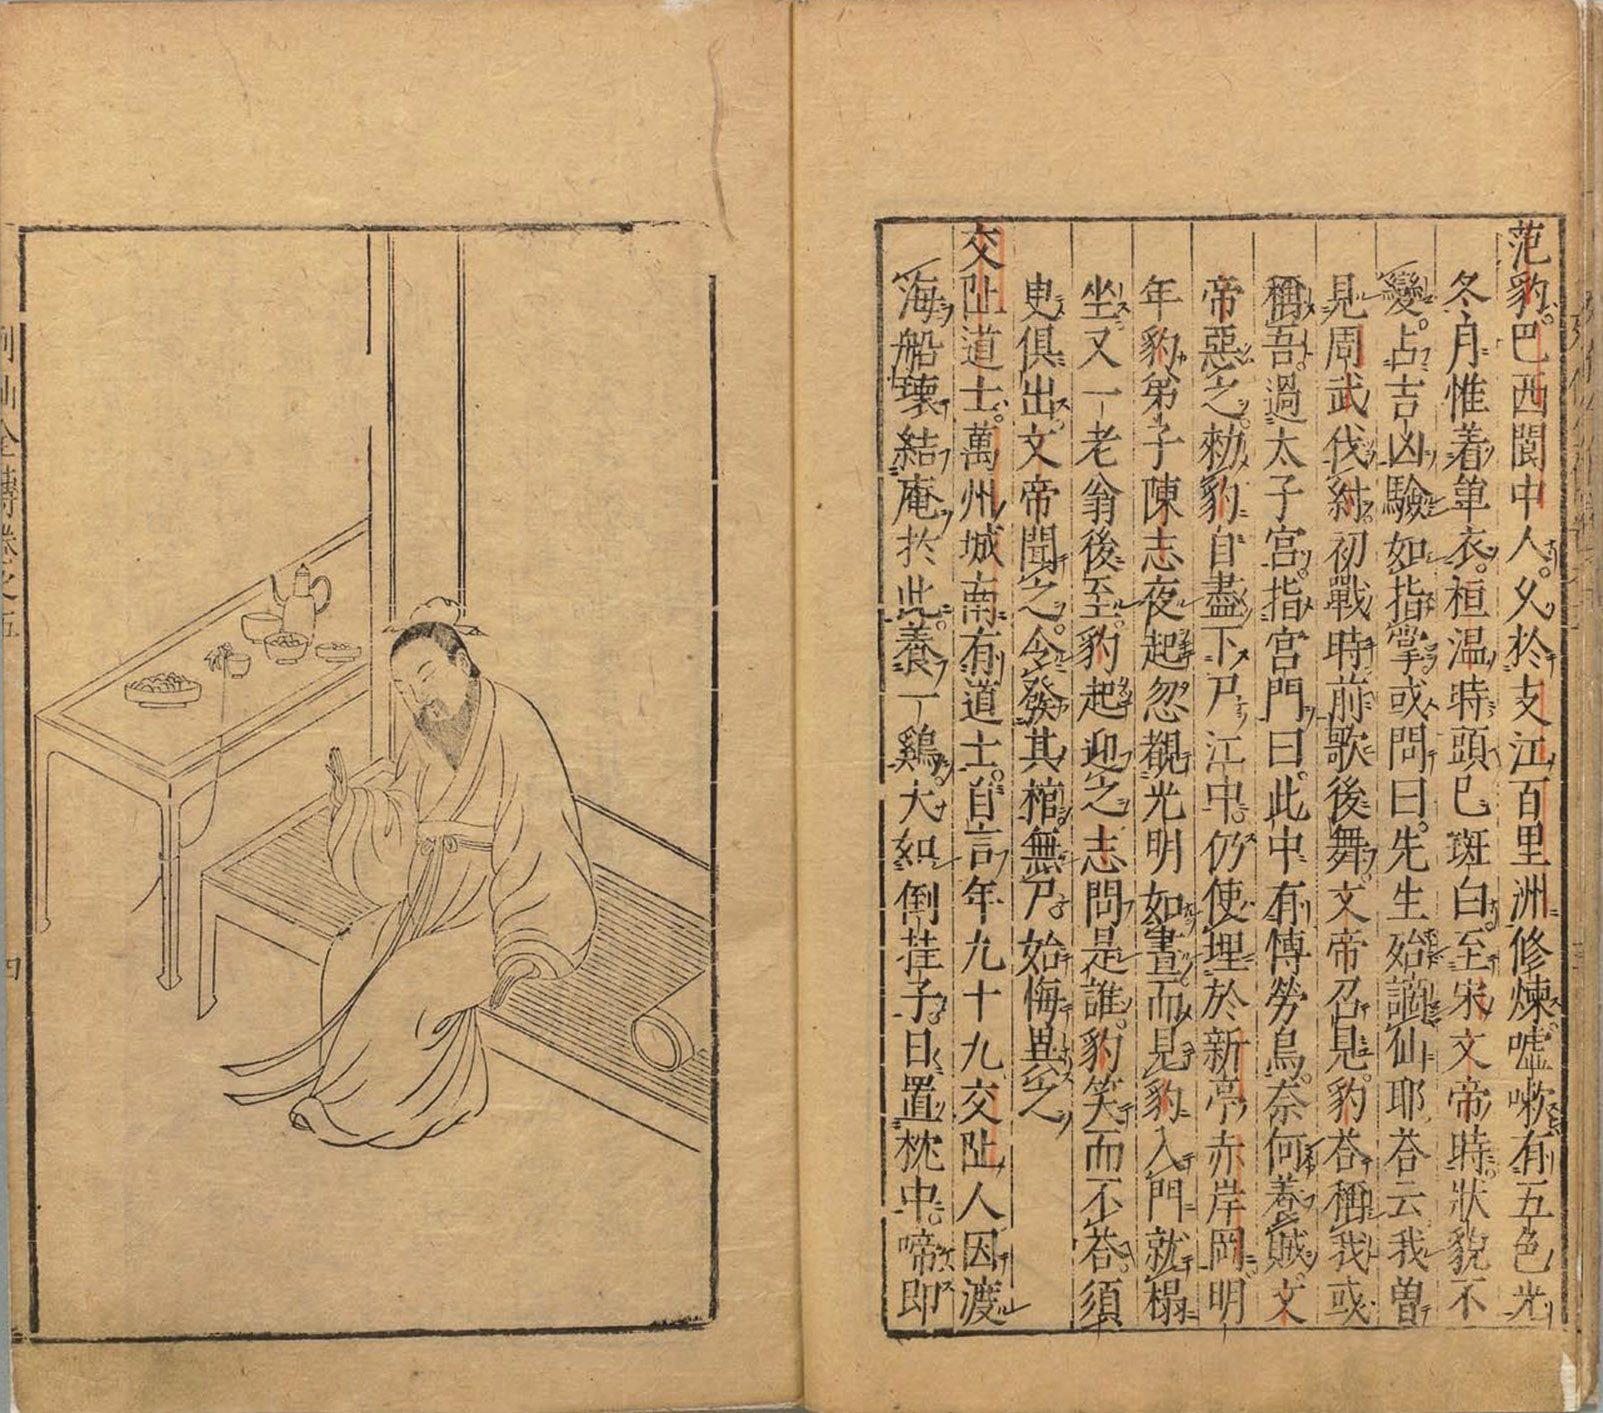 范豹巴西閬中人久於支江百里洲修煉嘘嗽有五色光
冬月惟着单衣桓温時頭已斑白至宋文帝時狀貌不
變占吉凶驗如指掌或問曰先生殆謫仙耶荅云我曽
見周武伐紂初戰時前歌後舞文帝召見豹荅稱我或
稱吾過太子宮指宮門曰此中有愽勞鳥奈何養賊文
帝惡之勑豹自盡下尸江中仍使埋於新亭赤岸岡明
年豹弟子陳志夜起忽覩光明如晝而見豹入門就榻
坐又一老翁後至豹起迎之志問是誰豹笑而不荅須
㬰俱出文帝聞之令發其棺無尸始悔異之
交阯道士萬州城南有道士自言年九十九交阯人因渡
海船壊結庵於此養一鷄大如倒挂子日置枕中啼即
列仙全傳卷之五
四